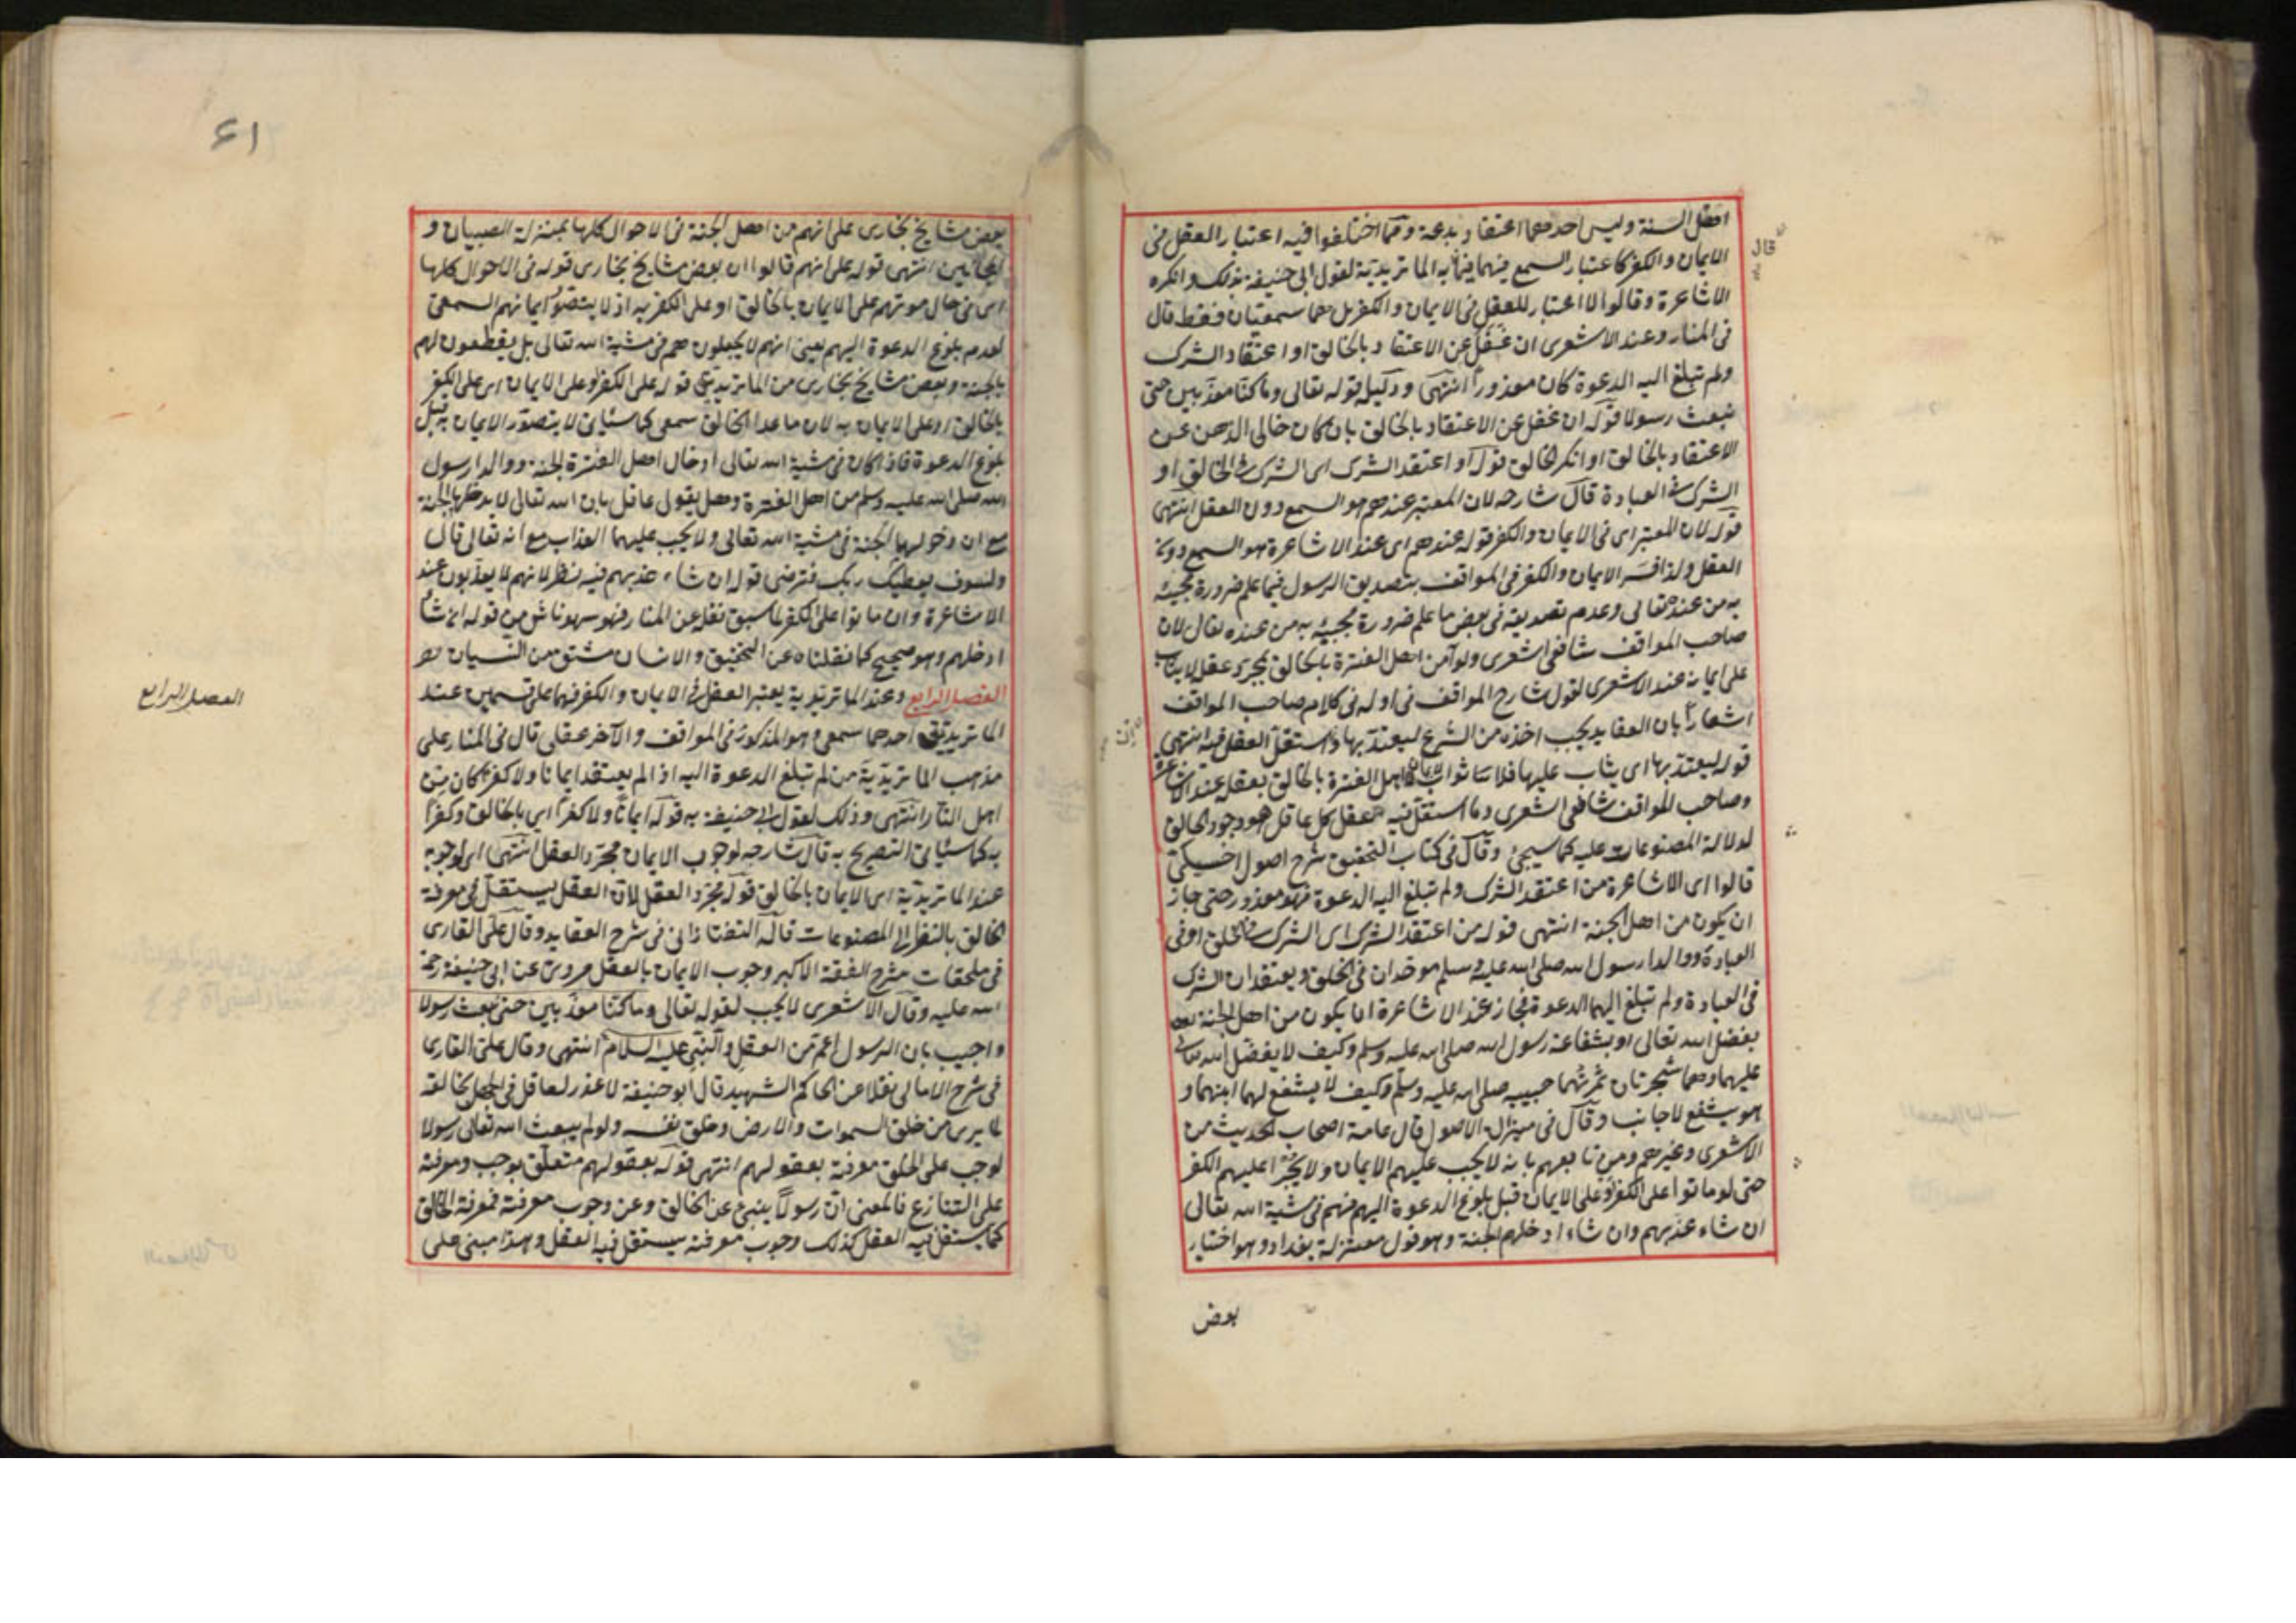 اهل السنة وليس احدهما اعتقاد بدعة ومما اختلفوا فيه اعتبار العقل فى
الايمان والكفر كاعتبار السمع فيهما فقال به الماتريدية لقول ابى حنيفة بذلك وانكره
قال
الاشاعرة وقالوا لا اعتبار للعقل فى الايمان والكفر بل هما سمعيتان فقط قال
فى المنار وعند الاشعرى ان غفل عن الاعتقاد بالخالق او اعتقاد الشرك
ولم تبلغ اليه الدعوة كان معذورا انتهى ودليله قوله تعالى وما كنا معذبين حتى
نبعث رسولا قوله ان غفل عن الاعتقاد بالخالق بان كان خالى الذهن عن
الاعتقاد بالخالق او انكر الخالق قوله او اعتقد الشرك اى الشرك فى الخالق او
الشرك فى العبادة قال شارحه لان المعتبر عندهم هو السمع دون العقل انتهى
قوله لان المعتبر اى فى الايمان والكفر قوله عندهم اى عند الاشاعرة هو السمع دون
العقل ولذا فسر الايمان والكفر فى المواقف بتصديق الرسول فيما علم ضرورة مجيئه
به من عنده تعالى وعدم تصديقه فى بعض ما علم ضرورة مجيئه به من عنده تعالى لان
صاحب المواقف شافعى اشعرى ولو آمن اهل الفترة بالخالق بمجرد عقله لا يثاب
على ايمانه عند الاشعرى لقول شارح المواقف فى اوله فى كلام صاحب المواقف
اشعارا بان العقايد يجب اخذه من الشرع ليعتد بها واستقل العقل فيه انتهى
قوله ليعتد بها اى يثاب عليها فلا ثواب لايمان اهل الفترة بالخالق بعقله عند الاشاعرة
وصاحب المواقف شافعى اشعرى وما استقل فيه عقل كل عاقل هو وجود الخالق
لدلالة المصنوعات عليه كما سيجئ وقال فى كتاب التحقيق شرح اصول اخسيكتى
قالوا اى الاشاعرة من اعتقد الشرك ولم تبلغ اليه الدعوة فهو معذور حتى جاز
ان يكون من اهل الجنة انتهى قوله من اعتقد الشرك اى الشرك فى الخلق او فى
العبادة ووالدا رسول الله صلى الله عليه وسلم موحدان فى الخلق ويعتقدان الشرك
فى العبادة ولم تبلغ اليهما الدعوة فجاز عند الاشاعرة ان يكون من اهل الجنة
بفضل الله تعالى او بشفاعة رسول الله صلى الله عليه وسلم وكيف لا يفضل الله تعالى
عليهما وهما شجرتان ثمرتهما حبيبه صلى الله عليه وسلم وكيف لا يشفع لهما ابنهما و
هو يشفع لاجانب وقال فى ميزان الاصول قال عامة اصحاب الحديث من
الاشعرى وغيرهم ومن تابعهم بانه لا يجب عليهم الايمان ولا يحرم عليهم الكفر
حتى لو ماتوا على الكفر او على الايمان قبل بلوغ الدعوة اليهم فهم فى مشية الله تعالى
ان شاء عذبهم وان شاء ادخلهم الجنة وهو قول معتزلة بغداد وهو اختيار
بعض
٦١
بعض مشايخ بخارى على انهم من اهل الجنة فى الاحوال كلها بمنزلة الصبيان و
المجانين انتهى قوله على انهم قالوا ان بعض مشايخ بخارى قوله فى الاحوال كلها
اى فى حال موتهم على الايمان بالخالق او على الكفر به اذ لا يتصور ايمانهم السمعى
لعدم بلوغ الدعوة اليهم يعنى انهم لا يجعلون هم فى مشية الله تعالى بل يقطعون لهم
بالجنة وبعض مشايخ بخارى من الماتريدية قوله على الكفر او على الايمان اى على الكفر
بالخالق او على الايمان به لان ما عدا الخالق سمعى كما سيأتى لا يتصور الايمان به قبل
بلوغ الدعوة فاذا كان فى مشية الله تعالى ادخال اهل الفترة الجنة ووالدا رسول
الله صلى الله عليه وسلم من اهل الفترة وهل يقول عاقل بان الله تعالى لا يدخلهما الجنة
مع ان دخولهما الجنة فى مشية الله تعالى ولا يجب عليهما العذاب مع انه تعالى قال
ولسوف يعطيك ربك فترضى قوله ان شاء عذبهم فيه نظر لانهم لا يعذبون عند
الاشاعرة وان ماتوا على الكفر لما سبق نقله عن المنار فهو سهو ناش من قوله ان شاء
ادخلهم وهو صحيح كما نقلناه عن التحقيق والانسان مشتق من النسيان
الفصل الرابع وعند الماتريدية يعتبر العقل فى الايمان والكفر فهما على قسمين عند
الفصل الرابع
الماتريدية احدهما سمعى وهو المذكور فى المواقف والآخر عقلى قال فى المنار على
مذهب الماتريدية من لم تبلغ الدعوة اليه اذا لم يعتقد ايمانا ولا كفرا كان من
اهل النار انتهى وذلك لقول ابى حنيفة به قوله ايمانا ولا كفرا اى بالخالق وكفرا
به كما سيأتى التصريح به قال شارحه لوجوب الايمان بمجرد العقل انتهى اى لوجوبه
عند الماتريدية اى الايمان بالخالق قوله بمجرد العقل لان العقل يستقل فى معرفة
الخالق بالنظر الى المصنوعات قاله التفتازانى فى شرح العقايد وقال على القارى
فى ملحقات شرح الفقه الاكبر وجوب الايمان بالعقل مروى عن ابى حنيفة رحمة
الله عليه وقال الاشعرى لا يجب لقوله تعالى وما كنا معذبين حتى نبعث رسولا
واجيب بان الرسول اعم من العقل والنبى عليه السلام انتهى وقال على القارى
فى شرح الامالى نقلا عن الحاكم الشهيد قال ابو حنيفة لا عذر لعاقل فى الجهل بخالقه
لما يرى من خلق السموات والارض وخلق نفسه ولو لم يبعث الله تعالى رسولا
لوجب على الخلق معرفته بعقولهم انتهى قوله بعقولهم متعلق بوجب ومعرفته
على التنازع فالمعنى ان رسولا ينبئ عن الخالق وعن وجوب معرفته فمعرفة الخالق
كما يستقل فيه العقل كذلك وجوب معرفته يستقل فيه العقل وهذا مبنى على